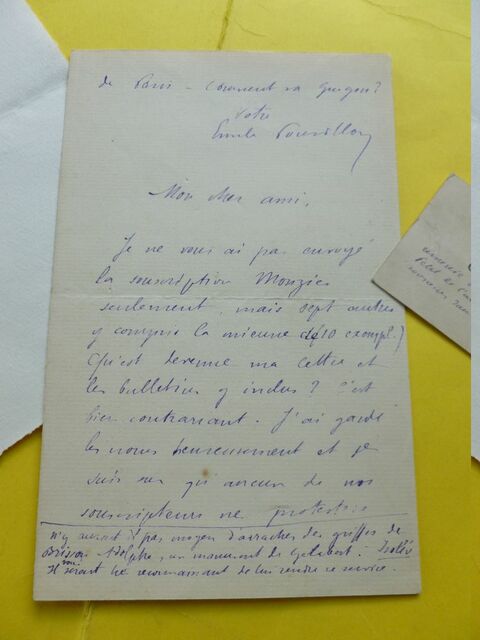 de Paris – Comment va Gergen?
Votre
Emile Pouvillon
Mon cher ami,
Je ne vous ai pas envoyé
la souscription Monziès
seulement, mais sept autres
y compris la mienne (de 10 exempl.)
Qu'est devenue ma lettre et
les bulletins y inclus? C'est
bien contrariant. J'ai gardé
les noms heureusement et je
suis sûr qu'aucun de nos
souscripteurs ne protestera
n'y aurait il pas moyen d'arracher des griffes de
Brisson Adolphe, un manuscrit de Gelabert.
Il vous serait bien reconnaissant de lui rendre ce service.